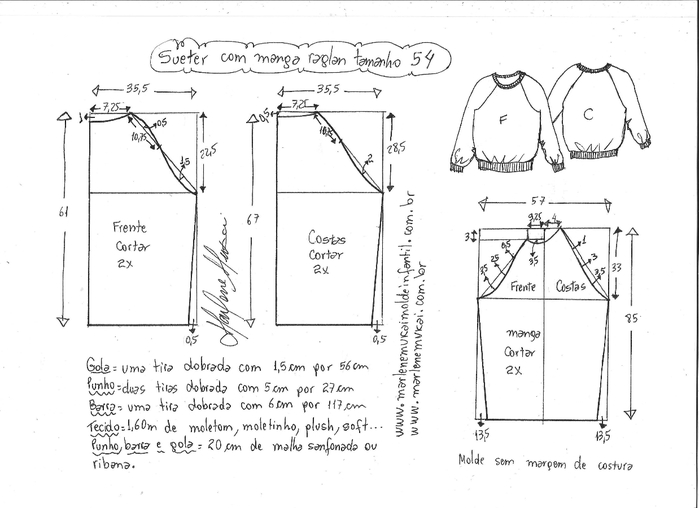 Sueter com manga raglan tamanho 54
35,5
7,25
1
0,5
10,75
1,5
22,5
61
Frente
Cortar
2x
0,5
35,5
7,25
0,5
10,75
2
28,5
67
Costas
Cortar
2x
0,5
Marlene Mukai
www.marlenemukaimoldeinfantil.com.br
www.marlenemukai.com.br
F
C
57
9,25
4
3
3,5
0,5
2,5
3,5
1
3
3,5
33
85
Frente
Costas
manga
Cortar
2x
13,5
13,5
Gola = uma tira dobrada com 1,5cm por 56cm
Punho = duas tiras dobrada com 5cm por 27cm
Barra = uma tira dobrada com 6cm por 117cm
Tecido = 1,60m de moletom, moletinho, plush, soft...
Punho, barra e gola = 20cm de malha sanfonada ou
ribana.
Molde sem margem de costura